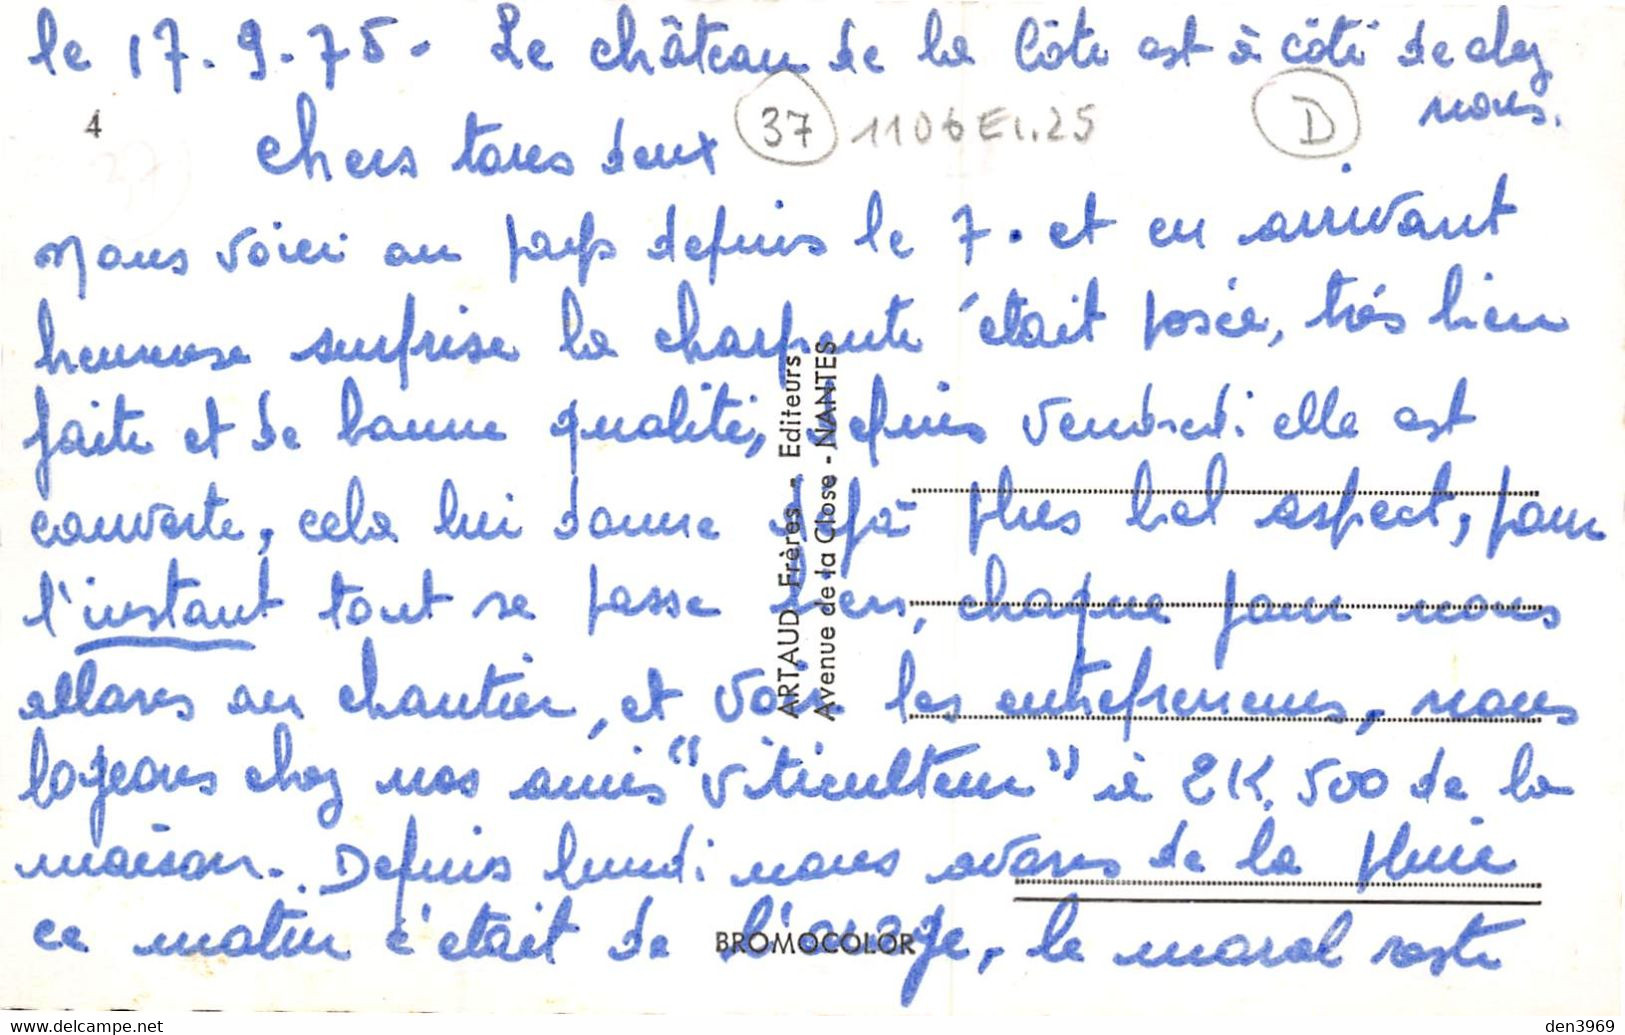 le 17.9.75 - Le château de la Côte est à côté de chez
nous.
4
37 1106 E1.25 D
Chers tous deux
Nous voici au pays depuis le 7. et en arrivant
heureuse surprise la charpente était posée, très bien
faite et de bonne qualité, depuis vendredi elle est
couverte, cela lui donne déjà plus bel aspect, pour
l'instant tout se passe bien, chaque jour nous
allons au chantier, et voir les entrepreneurs, nous
logeons chez nos amis "viticulteur" à 2K,500 de la
maison.. Depuis lundi nous avons de la pluie
ce matin c'était de l'orage, le moral reste
ARTAUD Frères - Editeurs
Avenue de la Close - NANTES
BROMOCOLOR
www.delcampe.net
den3969